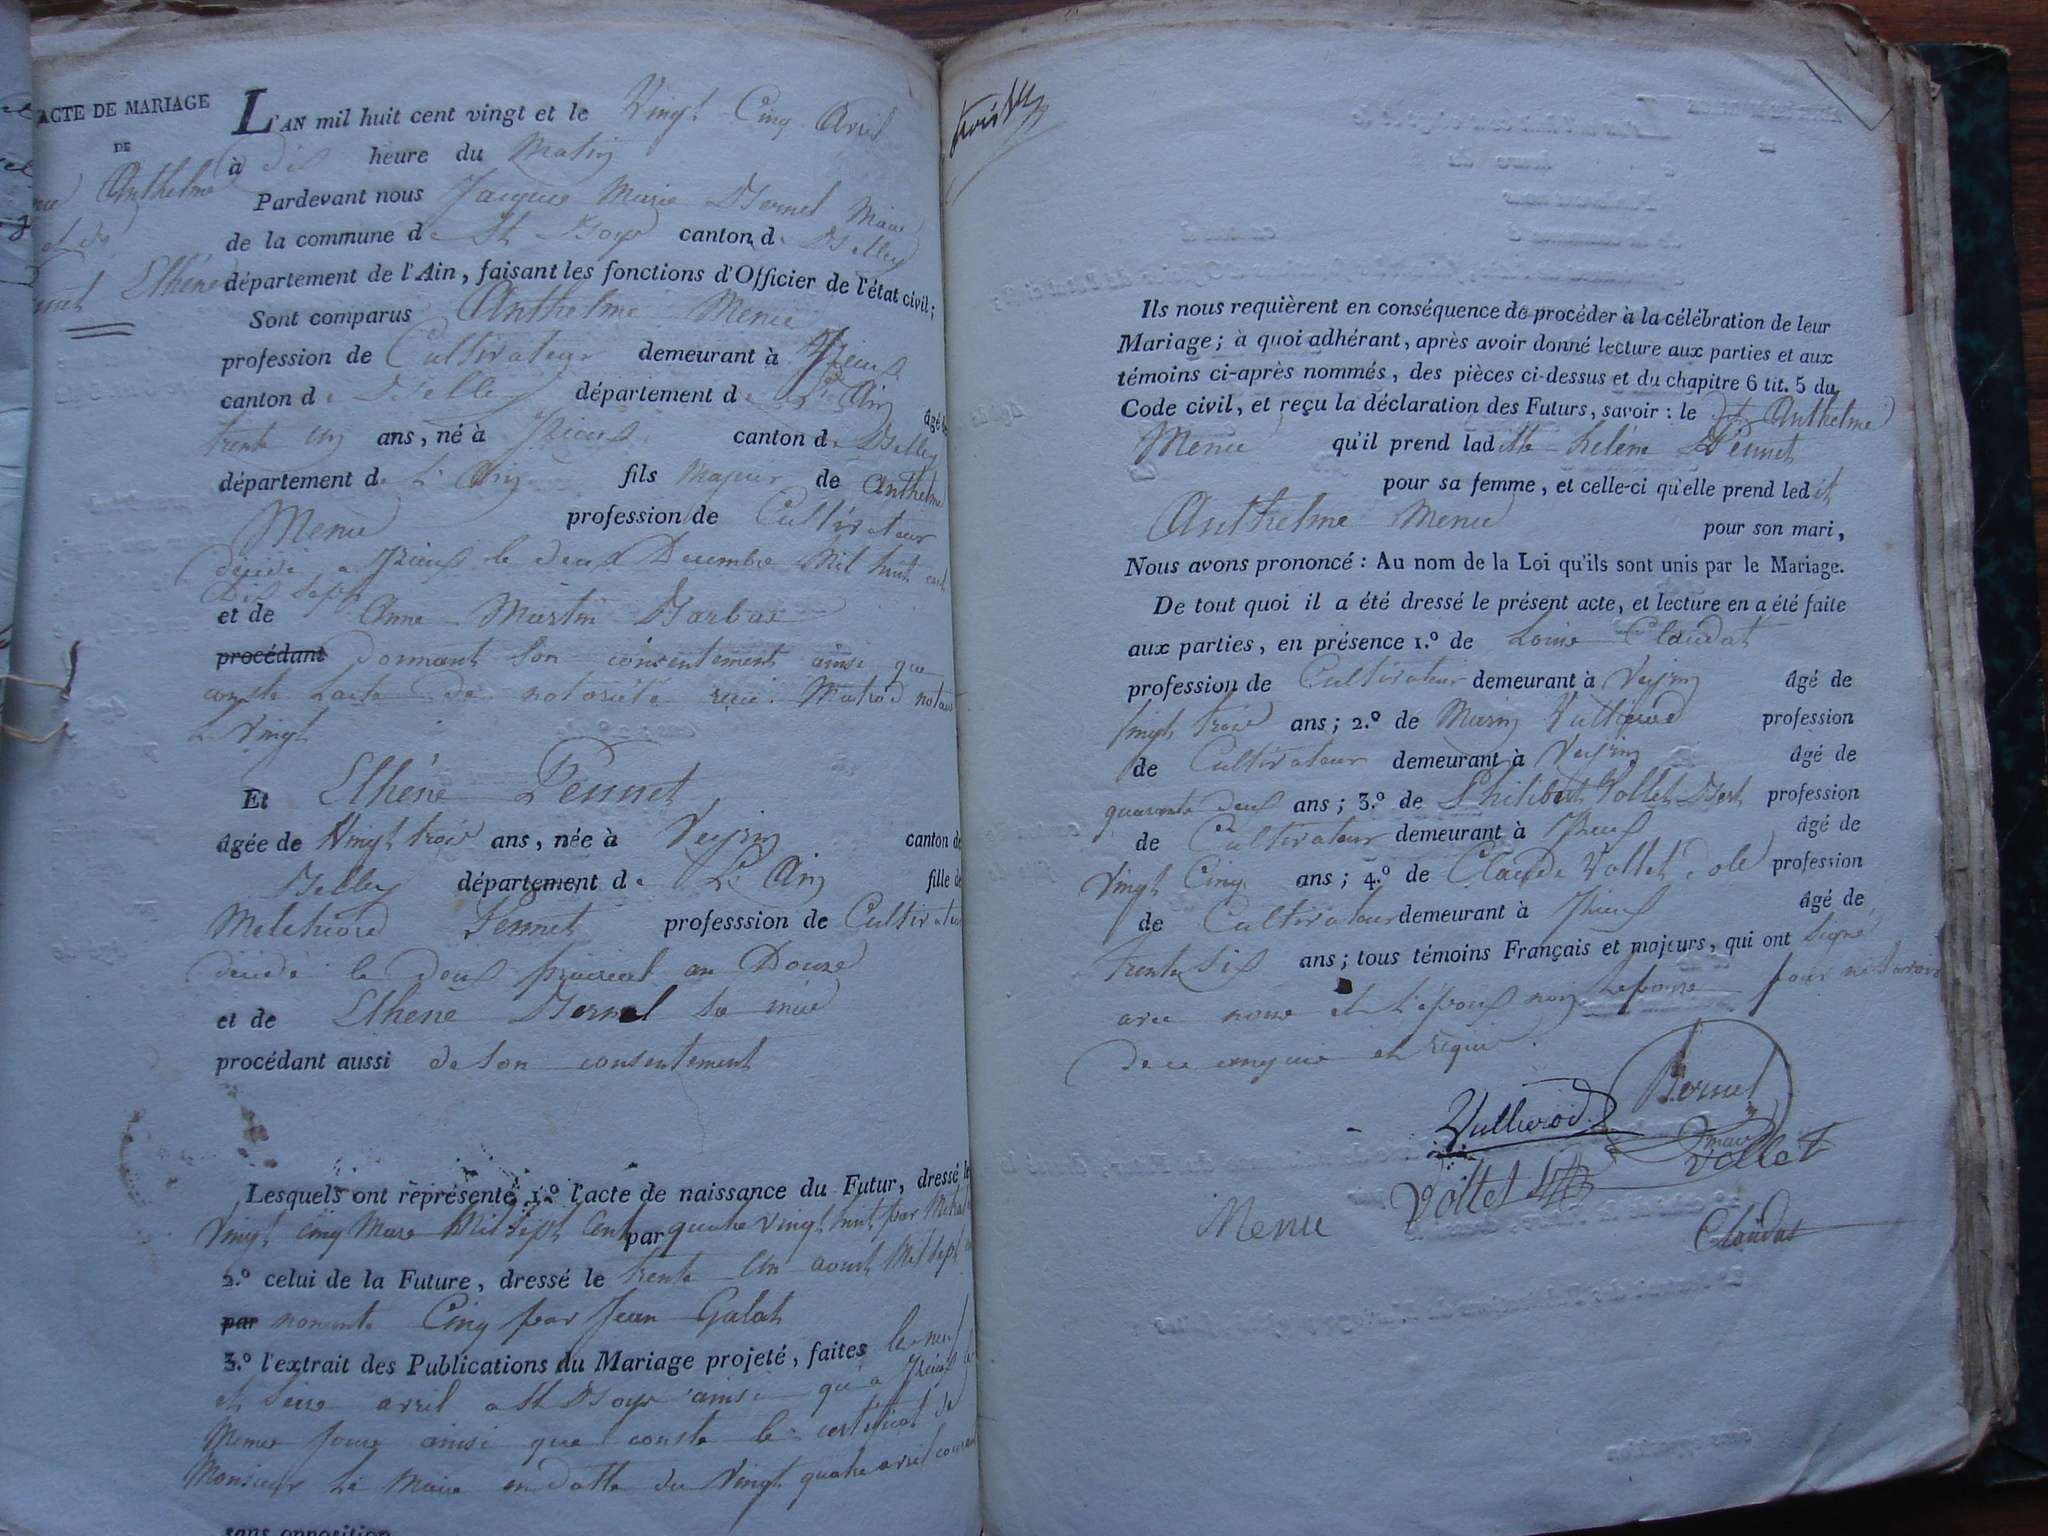 ACTE DE MARIAGE
DE
Anthelme
et de
Ethéne
L'AN mil huit cent vingt et le Vingt Cinq Avril
à dix heure du Matin
Pardevant nous Jacques Marie Bernel Maire
de la commune de St Boys canton de Belley
département de l'Ain, faisant les fonctions d'Officier de l'état civil;
Sont comparus Anthelme Menu
profession de Cultivateur demeurant à
canton de Belley département de L'Ain âgé de
trente un ans, né à canton de Belley
département de L'Ain fils Majeur de Anthelme
Menu profession de Cultivateur
décédé a le deux Decembre Mil huit cent
Dix Sept
et de Anne Martin Barbas
procédant donnant Son consentement ainsi que
conste L'acte de notorieté recu notaire
Le Vingt
Et Ethéne Pennet
âgée de Vingt trois ans, née à Veyrin canton de
Belley département de L'Ain fille de
Melchiord Pennet professsion de Cultivateur
décédé le deux prairial an Douze
et de Ethene Bernel Sa mere
procédant aussi de Son consentement
Lesquels ont représenté 1.º l'acte de naissance du Futur, dressé le
Vingt cinq Mars Mil Sept Cent par quatre vingt huit par
2.º celui de la Future, dressé le trente un aoust Mil Sept
par nonante Cinq par Jean Galat
3.º l'extrait des Publications du Mariage projeté, faites le neuf
et Seize avril a St Boys ainsi qu'a
Memes Jours ainsi que conste le certificat de
Monsieur Le Maire en datte du Vingt quatre avril courant
sans opposition
Ils nous requièrent en conséquence de procéder à la célébration de leur
Mariage; à quoi adhérant, après avoir donné lecture aux parties et aux
témoins ci-après nommés, des pièces ci-dessus et du chapitre 6 tit. 5 du
Code civil, et reçu la déclaration des Futurs, savoir: le dt Anthelme
Menu qu'il prend laditte heléne Pennet
pour sa femme, et celle-ci qu'elle prend ledit
Anthelme Menu pour son mari,
Nous avons prononcé: Au nom de la Loi qu'ils sont unis par le Mariage.
De tout quoi il a été dressé le présent acte, et lecture en a été faite
aux parties, en présence 1.º de Louis Claudat
profession de Cultivateur demeurant à Veyrin âgé de
vingt trois ans; 2.º de Marin Vullierod profession
de Cultivateur demeurant à Veyrin âgé de
quarante deux ans; 3.º de Philibert Vollet Bert profession
de Cultivateur demeurant à âgé de
Vingt Cinq ans; 4.º de Claude Vollet profession
de Cultivateur demeurant à âgé de
trente Six ans; tous témoins Français et majeurs, qui ont Signé
avec nous et L'epoux non Lepouse pour ne Savoir
de ce enquise et requise
Vullierod Bernel
maire
Vollet
Vollet
Menu
Claudat